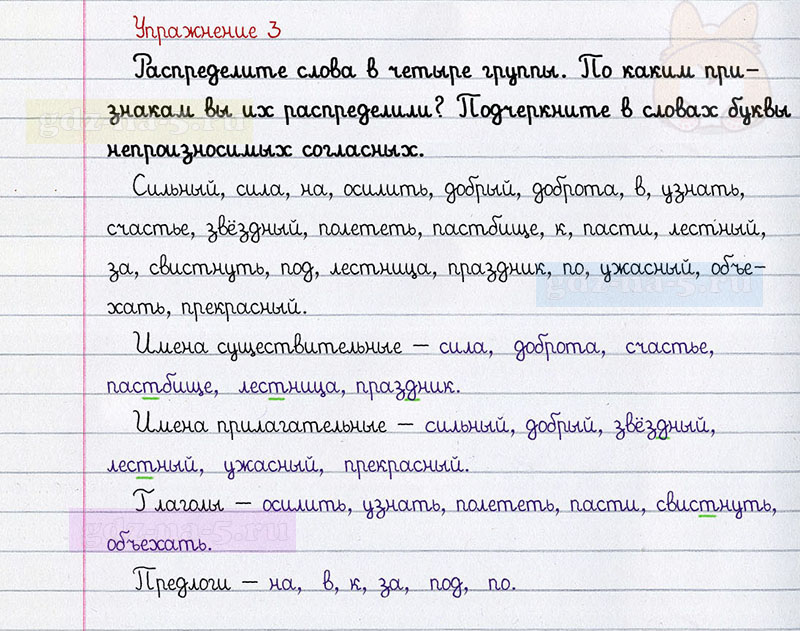 Упражнение 3
Распределите слова в четыре группы. По каким при-
знакам вы их распределили? Подчеркните в словах буквы
непроизносимых согласных.
Сильный, сила, на, осилить, добрый, доброта, в, узнать,
счастье, звёздный, полететь, пастбище, к, пасти, лестный,
за, свистнуть, под, лестница, праздник, по, ужасный, объе-
хать, прекрасный.
Имена существительные – сила, доброта, счастье,
пастбище, лестница, праздник.
Имена прилагательные – сильный, добрый, звёздный,
лестный, ужасный, прекрасный.
Глаголы – осилить, узнать, полететь, пасти, свистнуть,
объехать.
Предлоги – на, в, к, за, под, по.
gdz-na-5.ru
gdz-na-5.ru
gdz-na-5.ru